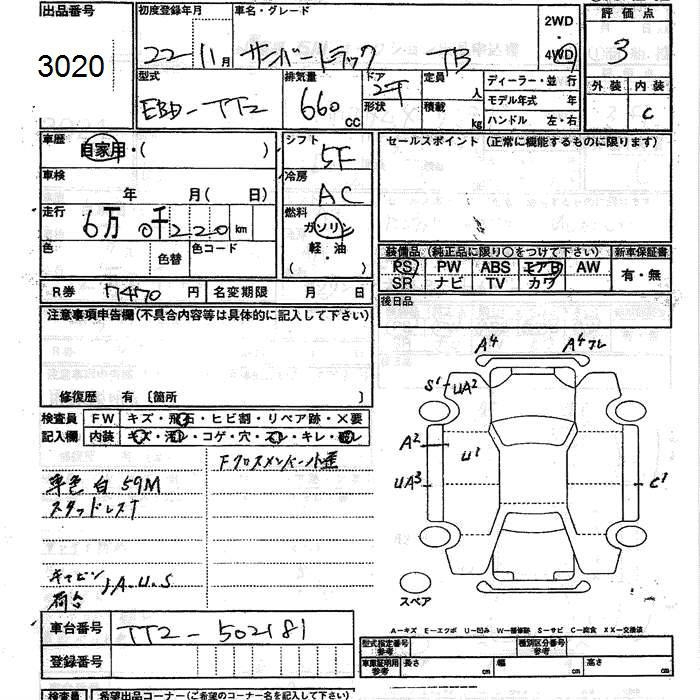 出品番号 初度登録年月 車名・グレード 2WD 評価点
3020 22-11月 サンバートラック TB ・4WD 3
型式 排気量 ドア 定員 ディーラー・並行 外装 内装
EBD-TT2 660 cc 2T 形状 人 積載 kg モデル年式 年 C
ハンドル 左・右
車歴 自家用・( ) シフト 5F セールスポイント (正常に機能するものに限ります)
車検 年 月( 日) 冷房 AC
走行 6万0千220km 燃料 ガソリン
色 色替 色コード 軽・油
( )
装備品 (純正品に限り○をつけて下さい) 新車保証書
PS PW ABS エアB AW 有・無
SR ナビ TV カワ
R券 7470円 名変期限 月 日 後日品
注意事項申告欄(不具合内容等は具体的に記入して下さい)
修復歴 有 〔箇所 〕
検査員 FW キズ・飛石・ヒビ割・リペア跡・×要
記入欄 内装 キズ・汚レ・コゲ・穴・スレ・キレ・破レ
Fクロスメンバー小歪
車色 白 59M
スタッドレスT
キャビン
荷台 A.U.S
A4 A4フレ
S1 UA2
A2 U1
UA3 C1
スペア
A－キズ E－エクボ U－凹み W－補修跡 S－サビ C－腐食 XX－交換済
車台番号 TT2-502181
登録番号
型式指定番号 参考 種別区分番号 参考
車庫証明用 参考 長さ cm 幅 cm 高さ cm
検査員 希望出品コーナー(ご希望のコーナー名を記入して下さい)